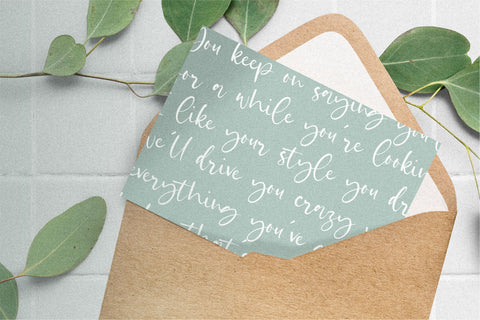 You keep on saying you'
or a while you're lookin
like your style you dr
we'll drive you crazy
everything you've